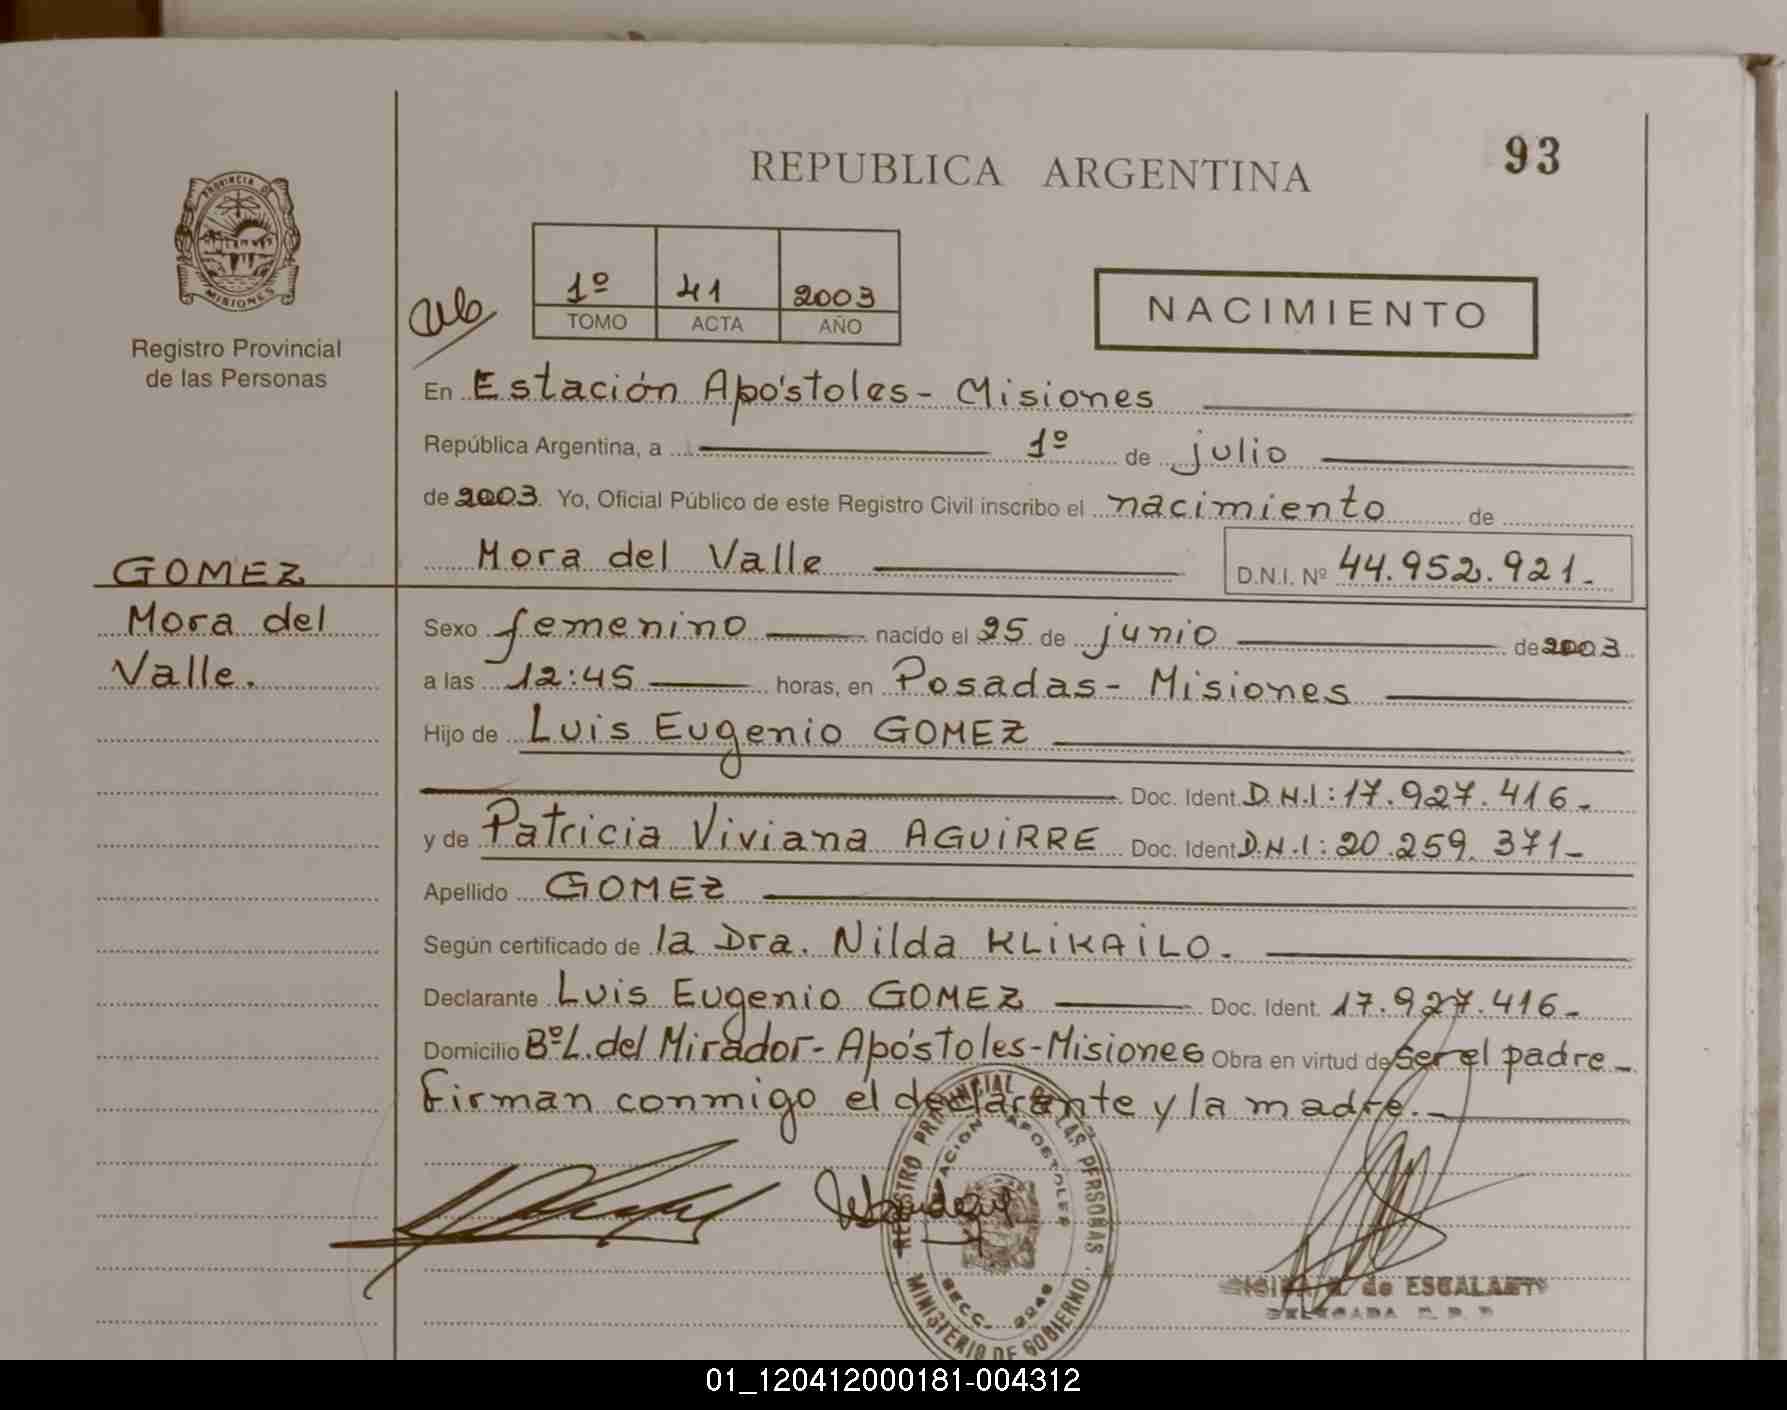 REPUBLICA ARGENTINA
93
PROVINCIA DE
MISIONES
Registro Provincial
de las Personas
1º 41 2003
TOMO ACTA AÑO
NACIMIENTO
En Estación Apóstoles - Misiones
República Argentina, a 1º de julio
de 2003. Yo, Oficial Público de este Registro Civil inscribo el nacimiento de
Mora del Valle D.N.I. Nº 44.952.921.-
GOMEZ
Mora del
Valle.
Sexo femenino nacido el 25 de junio de 2003
a las 12:45 horas, en Posadas - Misiones
Hijo de Luis Eugenio GOMEZ
Doc. Ident. D.N.I: 17.927.416.-
y de Patricia Viviana AGUIRRE Doc. Ident D.N.I: 20.259.371-
Apellido GOMEZ
Según certificado de la Dra. Nilda KLIKAILO.
Declarante Luis Eugenio GOMEZ Doc. Ident. 17.927.416-
Domicilio BºL. del Mirador - Apóstoles - Misiones Obra en virtud de Ser el padre -
Firman conmigo el declarante y la madre. -
REGISTRO PROVINCIAL DE LAS PERSONAS
ESTACION APOSTOLES
SECC.
MINISTERIO DE GOBIERNO
de ESCALANTE
01_120412000181-004312